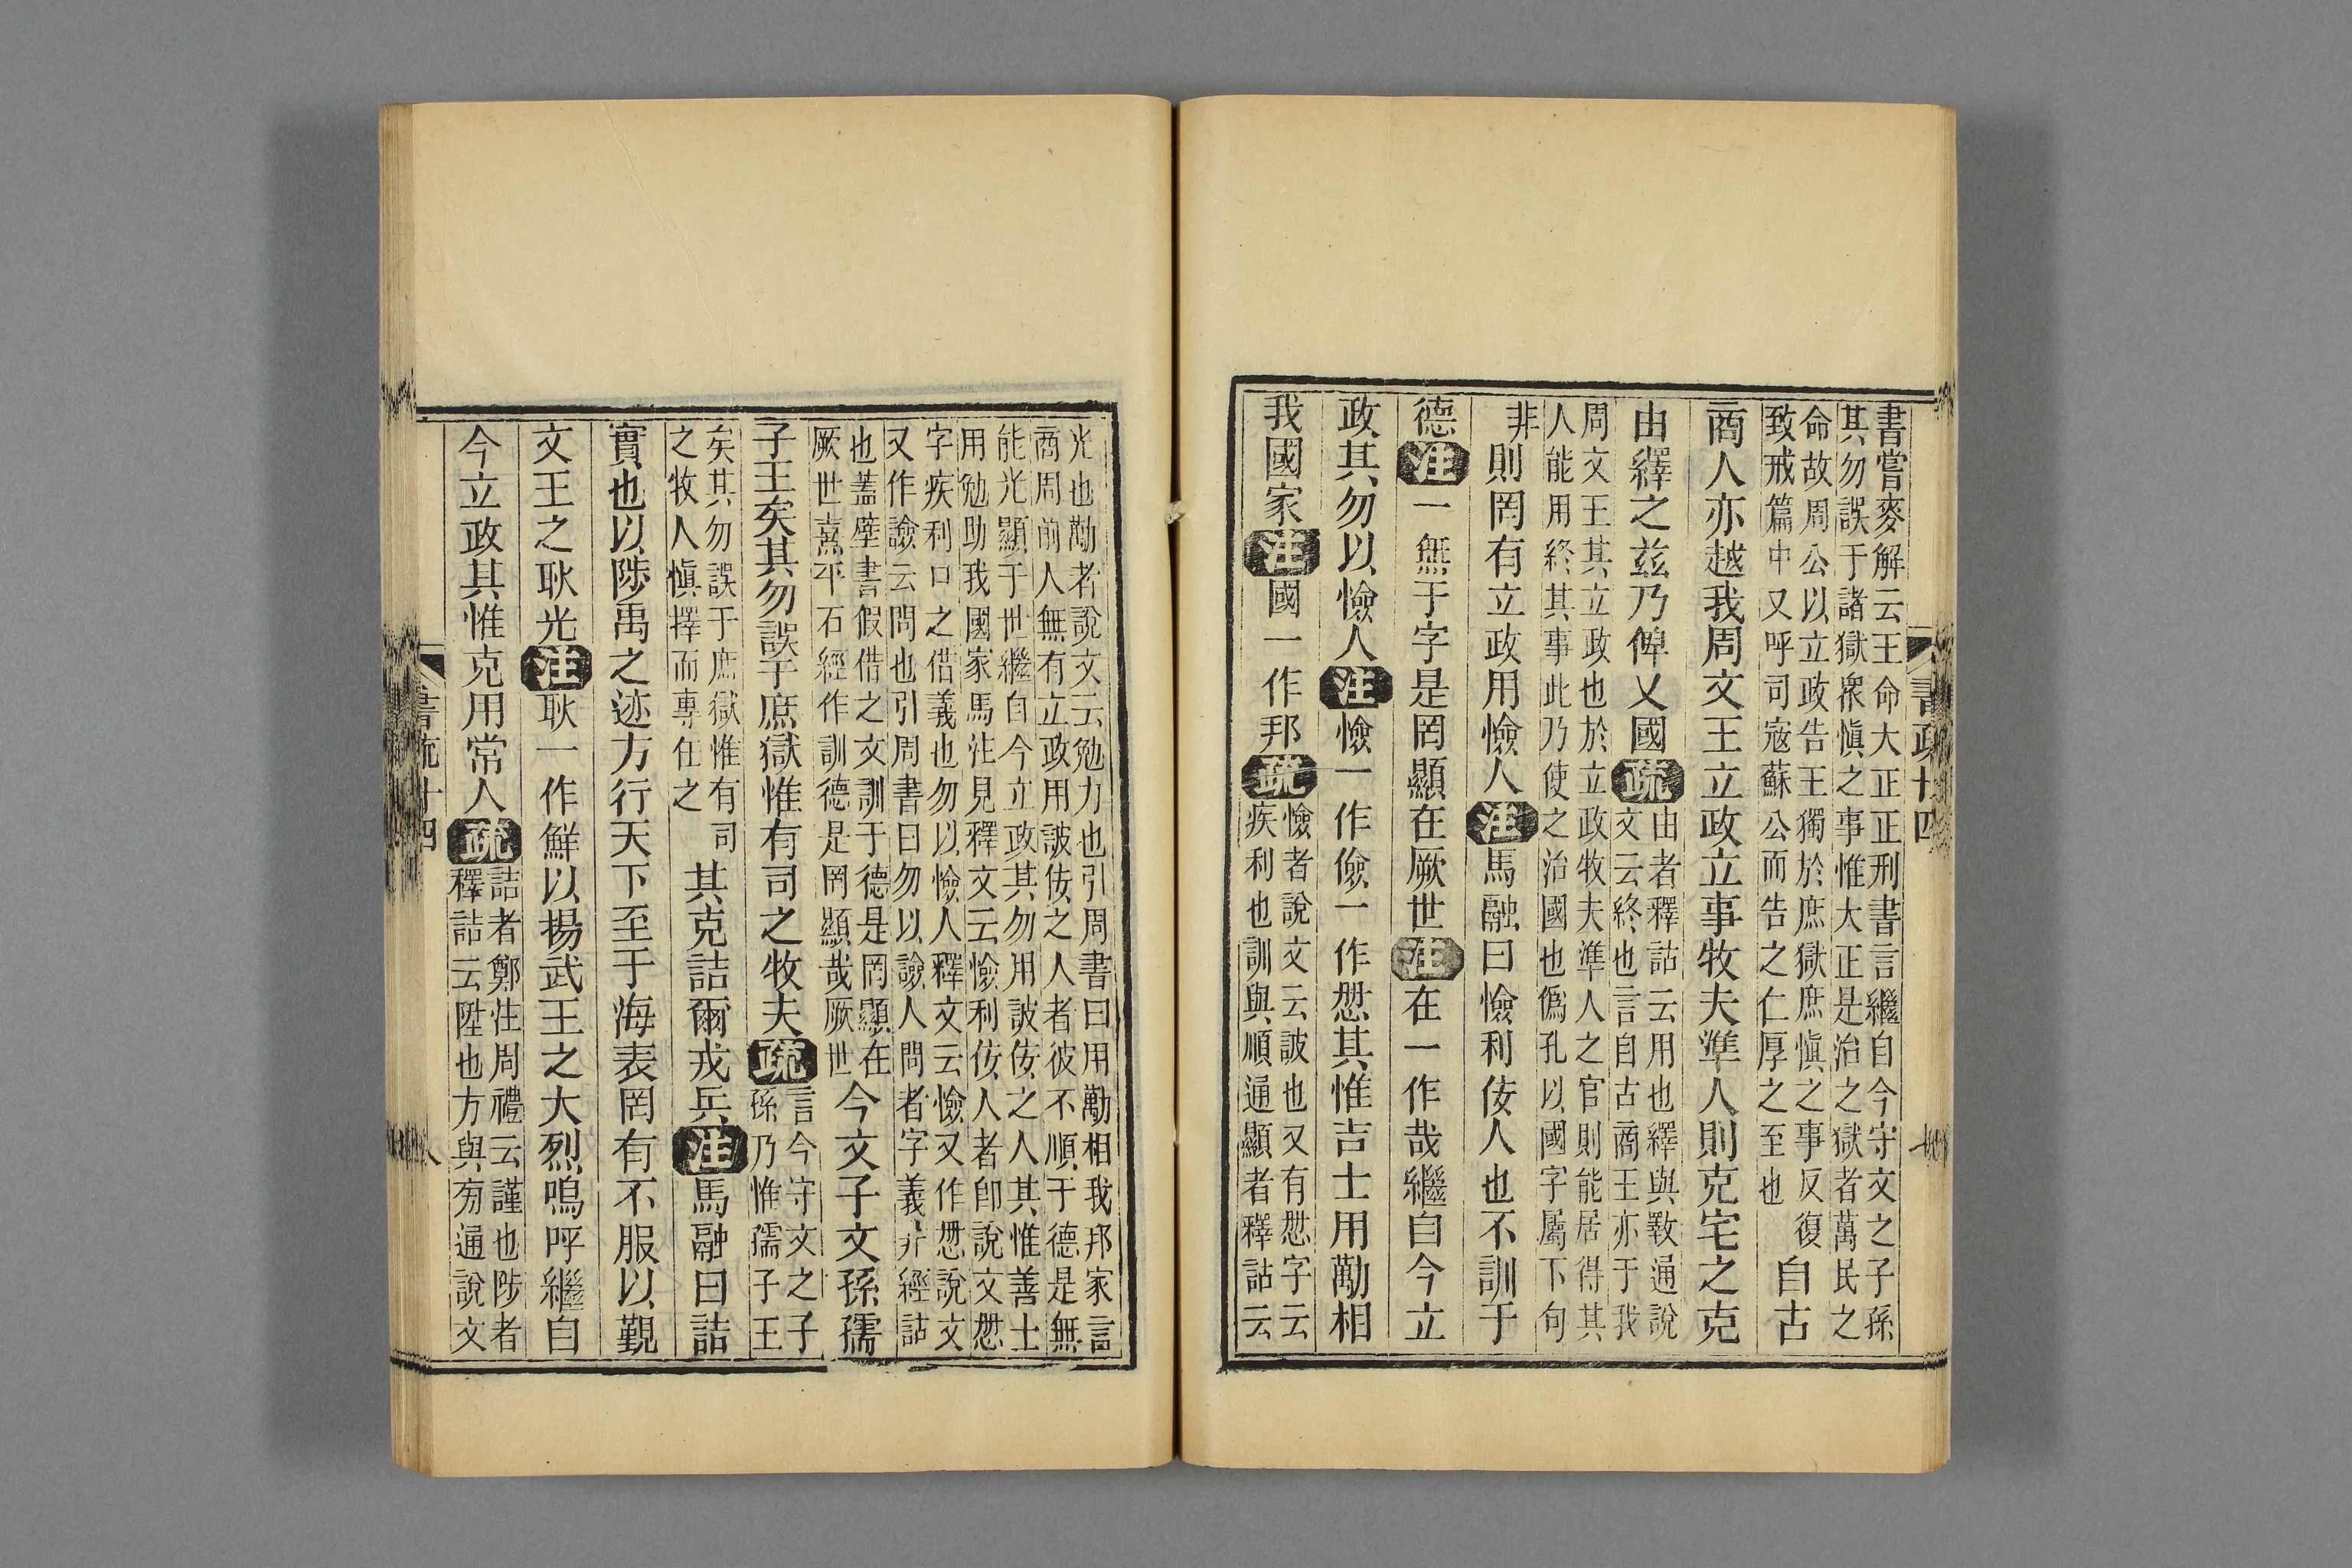 書嘗麥解云王命大正正刑書言繼自今守文之子孫
其勿誤于諸獄衆慎之事惟大正是治之獄者萬民之
命故周公以立政告王獨於庶獄庶慎之事反復
致戒篇中又呼司寇蘇公而告之仁厚之至也
自古
商人亦越我周文王立政立事牧夫準人則克宅之克
由繹之茲乃俾乂國疏
由者釋詁云用也繹與斁通說
文云終也言自古商王亦于我
周文王其立政也於立政牧夫準人之官則能居得其
人能用終其事此乃使之治國也僞孔以國字屬下句
非
則罔有立政用憸人注馬融曰憸利佞人也不訓于
德注一無于字是罔顯在厥世注在一作哉繼自今立
政其勿以憸人注憸一作儉一作愸其惟吉士用勱相
我國家注國一作邦疏
憸者說文云詖也又有愸字云
疾利也訓與順通顯者釋詁云
光也勱者說文云勉力也引周書曰用勱相我邦家言
商周前人無有立政用詖佞之人者彼不順于德是無
能光顯于世繼自今立政其勿用詖佞之人其惟善士
用勉助我國家馬注見釋文云憸利佞人者卽說文愸
字疾利口之借義也勿以憸人釋文云憸又作愸說文
又作譣云問也引周書曰勿以譣人問者字義幷經詁
也蓋壁書假借之文訓于德是罔顯在
厥世熹平石經作訓德是罔顯哉厥世
今文子文孫孺
子王矣其勿誤于庶獄惟有司之牧夫疏
言今守文之子
孫乃惟孺子王
矣其勿誤于庶獄惟有司
之牧人慎擇而專任之
其克詰爾戎兵注馬融曰詰
實也以陟禹之迹方行天下至于海表罔有不服以觀
文王之耿光注耿一作鮮以揚武王之大烈嗚呼繼自
今立政其惟克用常人疏
詰者鄭注周禮云謹也陟者
釋詁云陞也方與旁通說文